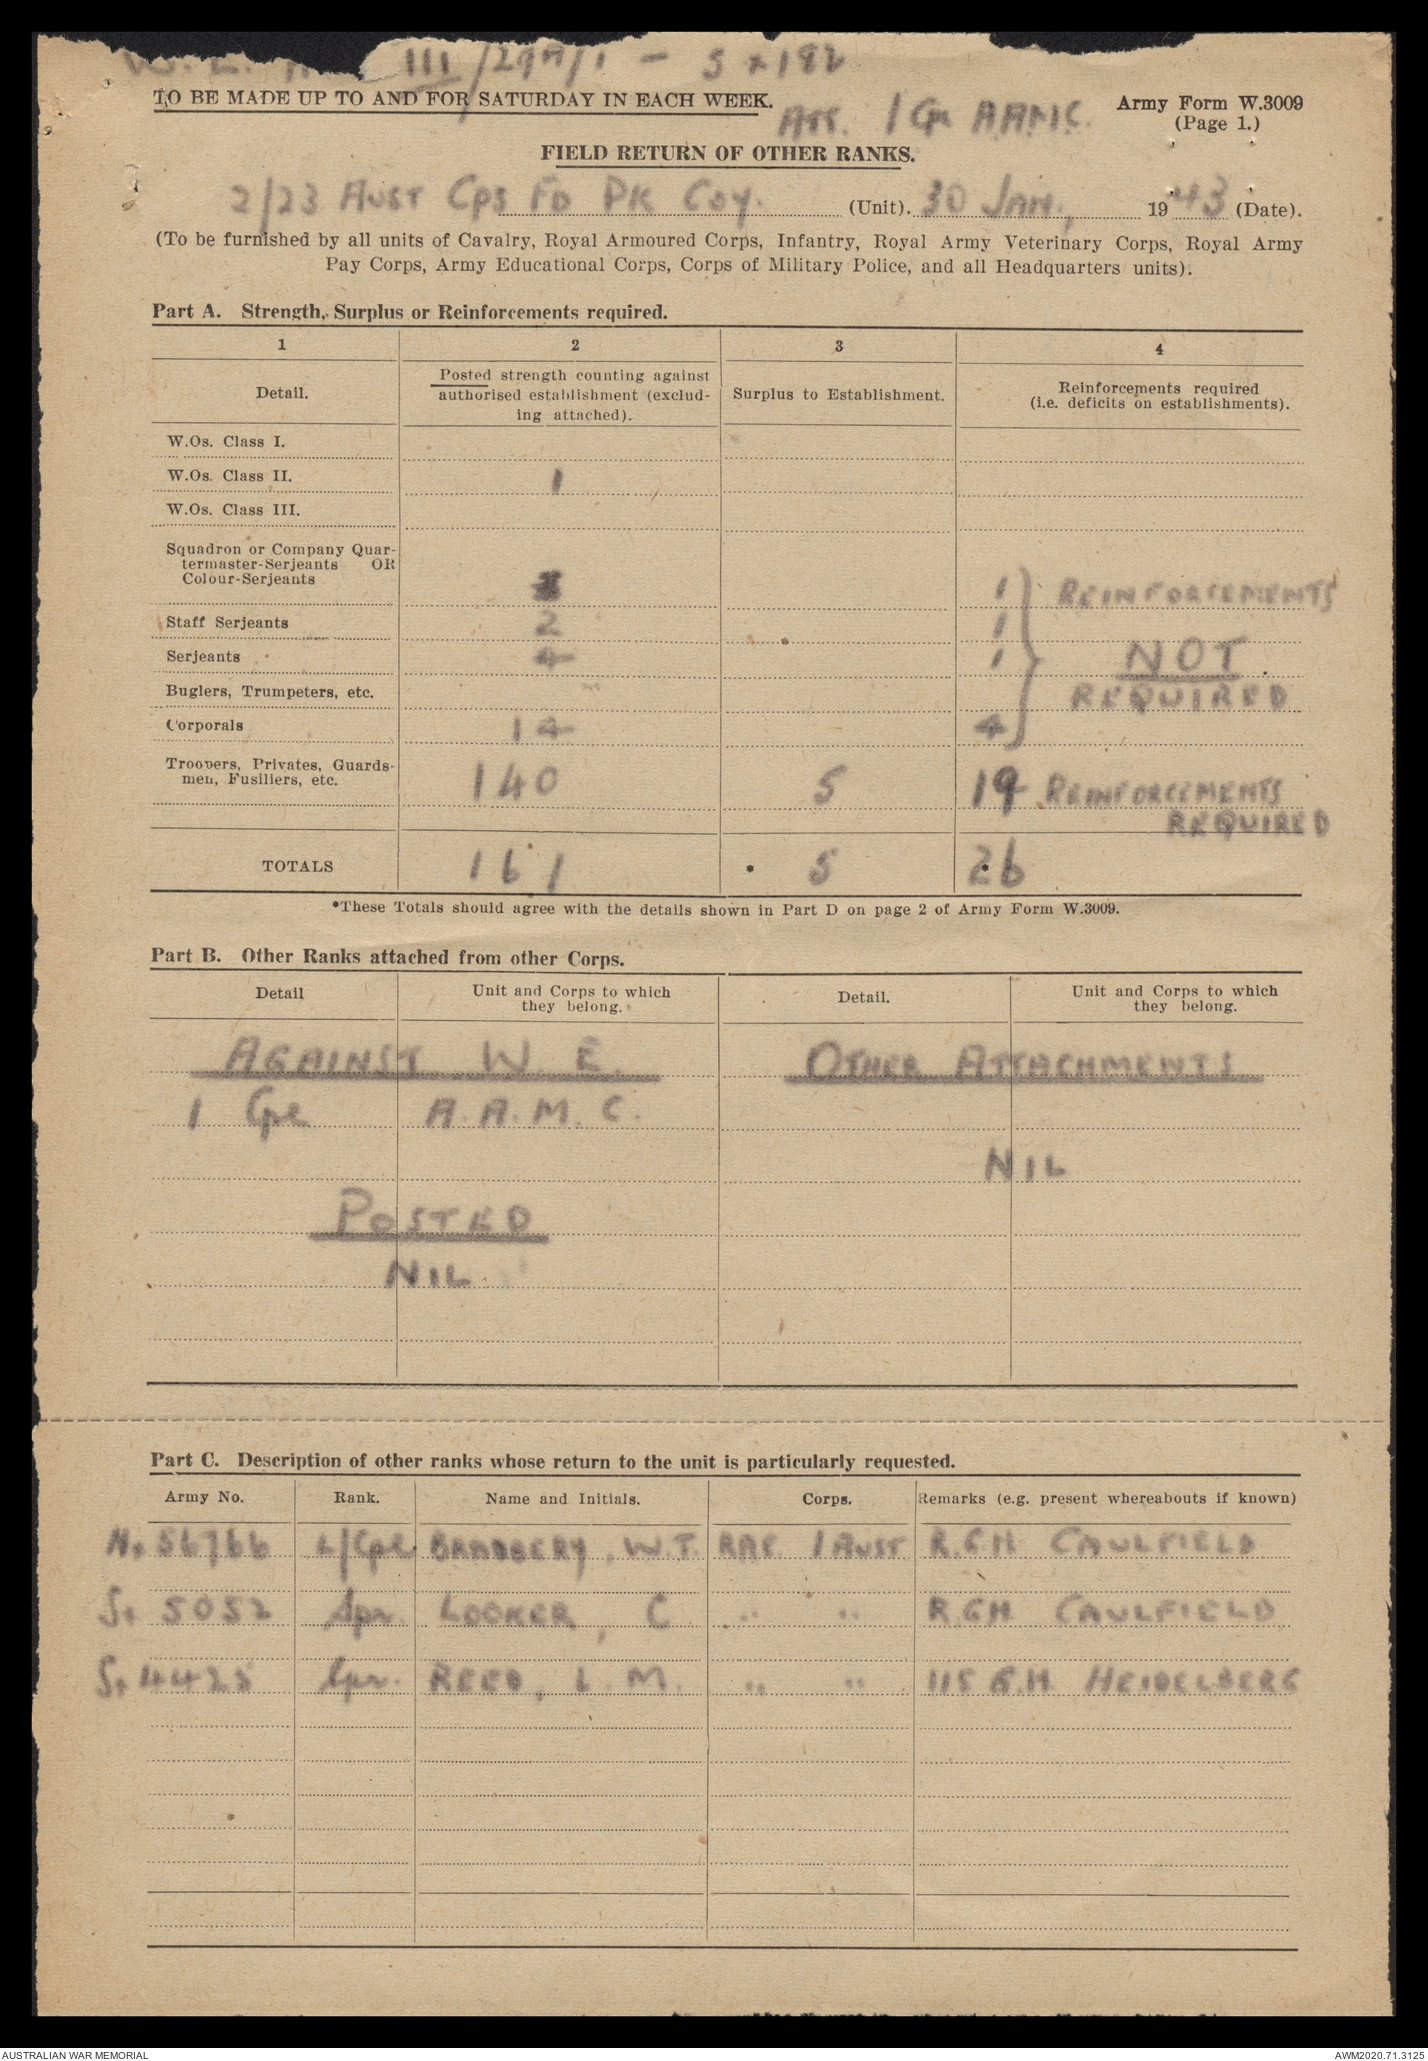 III/29A/1 - 5 x 182
TO BE MADE UP TO AND FOR SATURDAY IN EACH WEEK.
Army Form W.3009
(Page 1.)
Att. 1 Cpl A.A.M.C.
FIELD RETURN OF OTHER RANKS.
2/23 Aust Cps Fd Pk Coy. (Unit). 30 Jan., 1943 (Date).
(To be furnished by all units of Cavalry, Royal Armoured Corps, Infantry, Royal Army Veterinary Corps, Royal Army
Pay Corps, Army Educational Corps, Corps of Military Police, and all Headquarters units).
Part A. Strength, Surplus or Reinforcements required.
1 2 3 4
Detail.
Posted strength counting against
authorised establishment (exclud-
ing attached).
Surplus to Establishment.
Reinforcements required
(i.e. deficits on establishments).
W.Os. Class I.
W.Os. Class II. 1
W.Os. Class III.
Squadron or Company Quar-
termaster-Serjeants OR
Colour-Serjeants 1 REINFORCEMENTS
Staff Serjeants 2 1
Serjeants 4 1 NOT
Buglers, Trumpeters, etc. REQUIRED
Corporals 14 4
Troopers, Privates, Guards-
men, Fusiliers, etc. 140 5 19 REINFORCEMENTS
REQUIRED
TOTALS 161 • 5 26
*These Totals should agree with the details shown in Part D on page 2 of Army Form W.3009.
Part B. Other Ranks attached from other Corps.
Detail
Unit and Corps to which
they belong.
Detail.
Unit and Corps to which
they belong.
AGAINST W.E. OTHER ATTACHMENTS
1 Cpl A.A.M.C.
NIL
POSTED
NIL
Part C. Description of other ranks whose return to the unit is particularly requested.
Army No. Rank. Name and Initials. Corps. Remarks (e.g. present whereabouts if known)
Nx 56766 L/Cpl BRADBERY, W.T. RAE 1 AUST R.G.H. CAULFIELD
Sx 5052 Spr. LOOKER, C " " R.G.H. CAULFIELD
Sx 4425 Spr. REED, L.M. " " 115 G.H. HEIDELBERG
AUSTRALIAN WAR MEMORIAL
AWM2020.71.3125